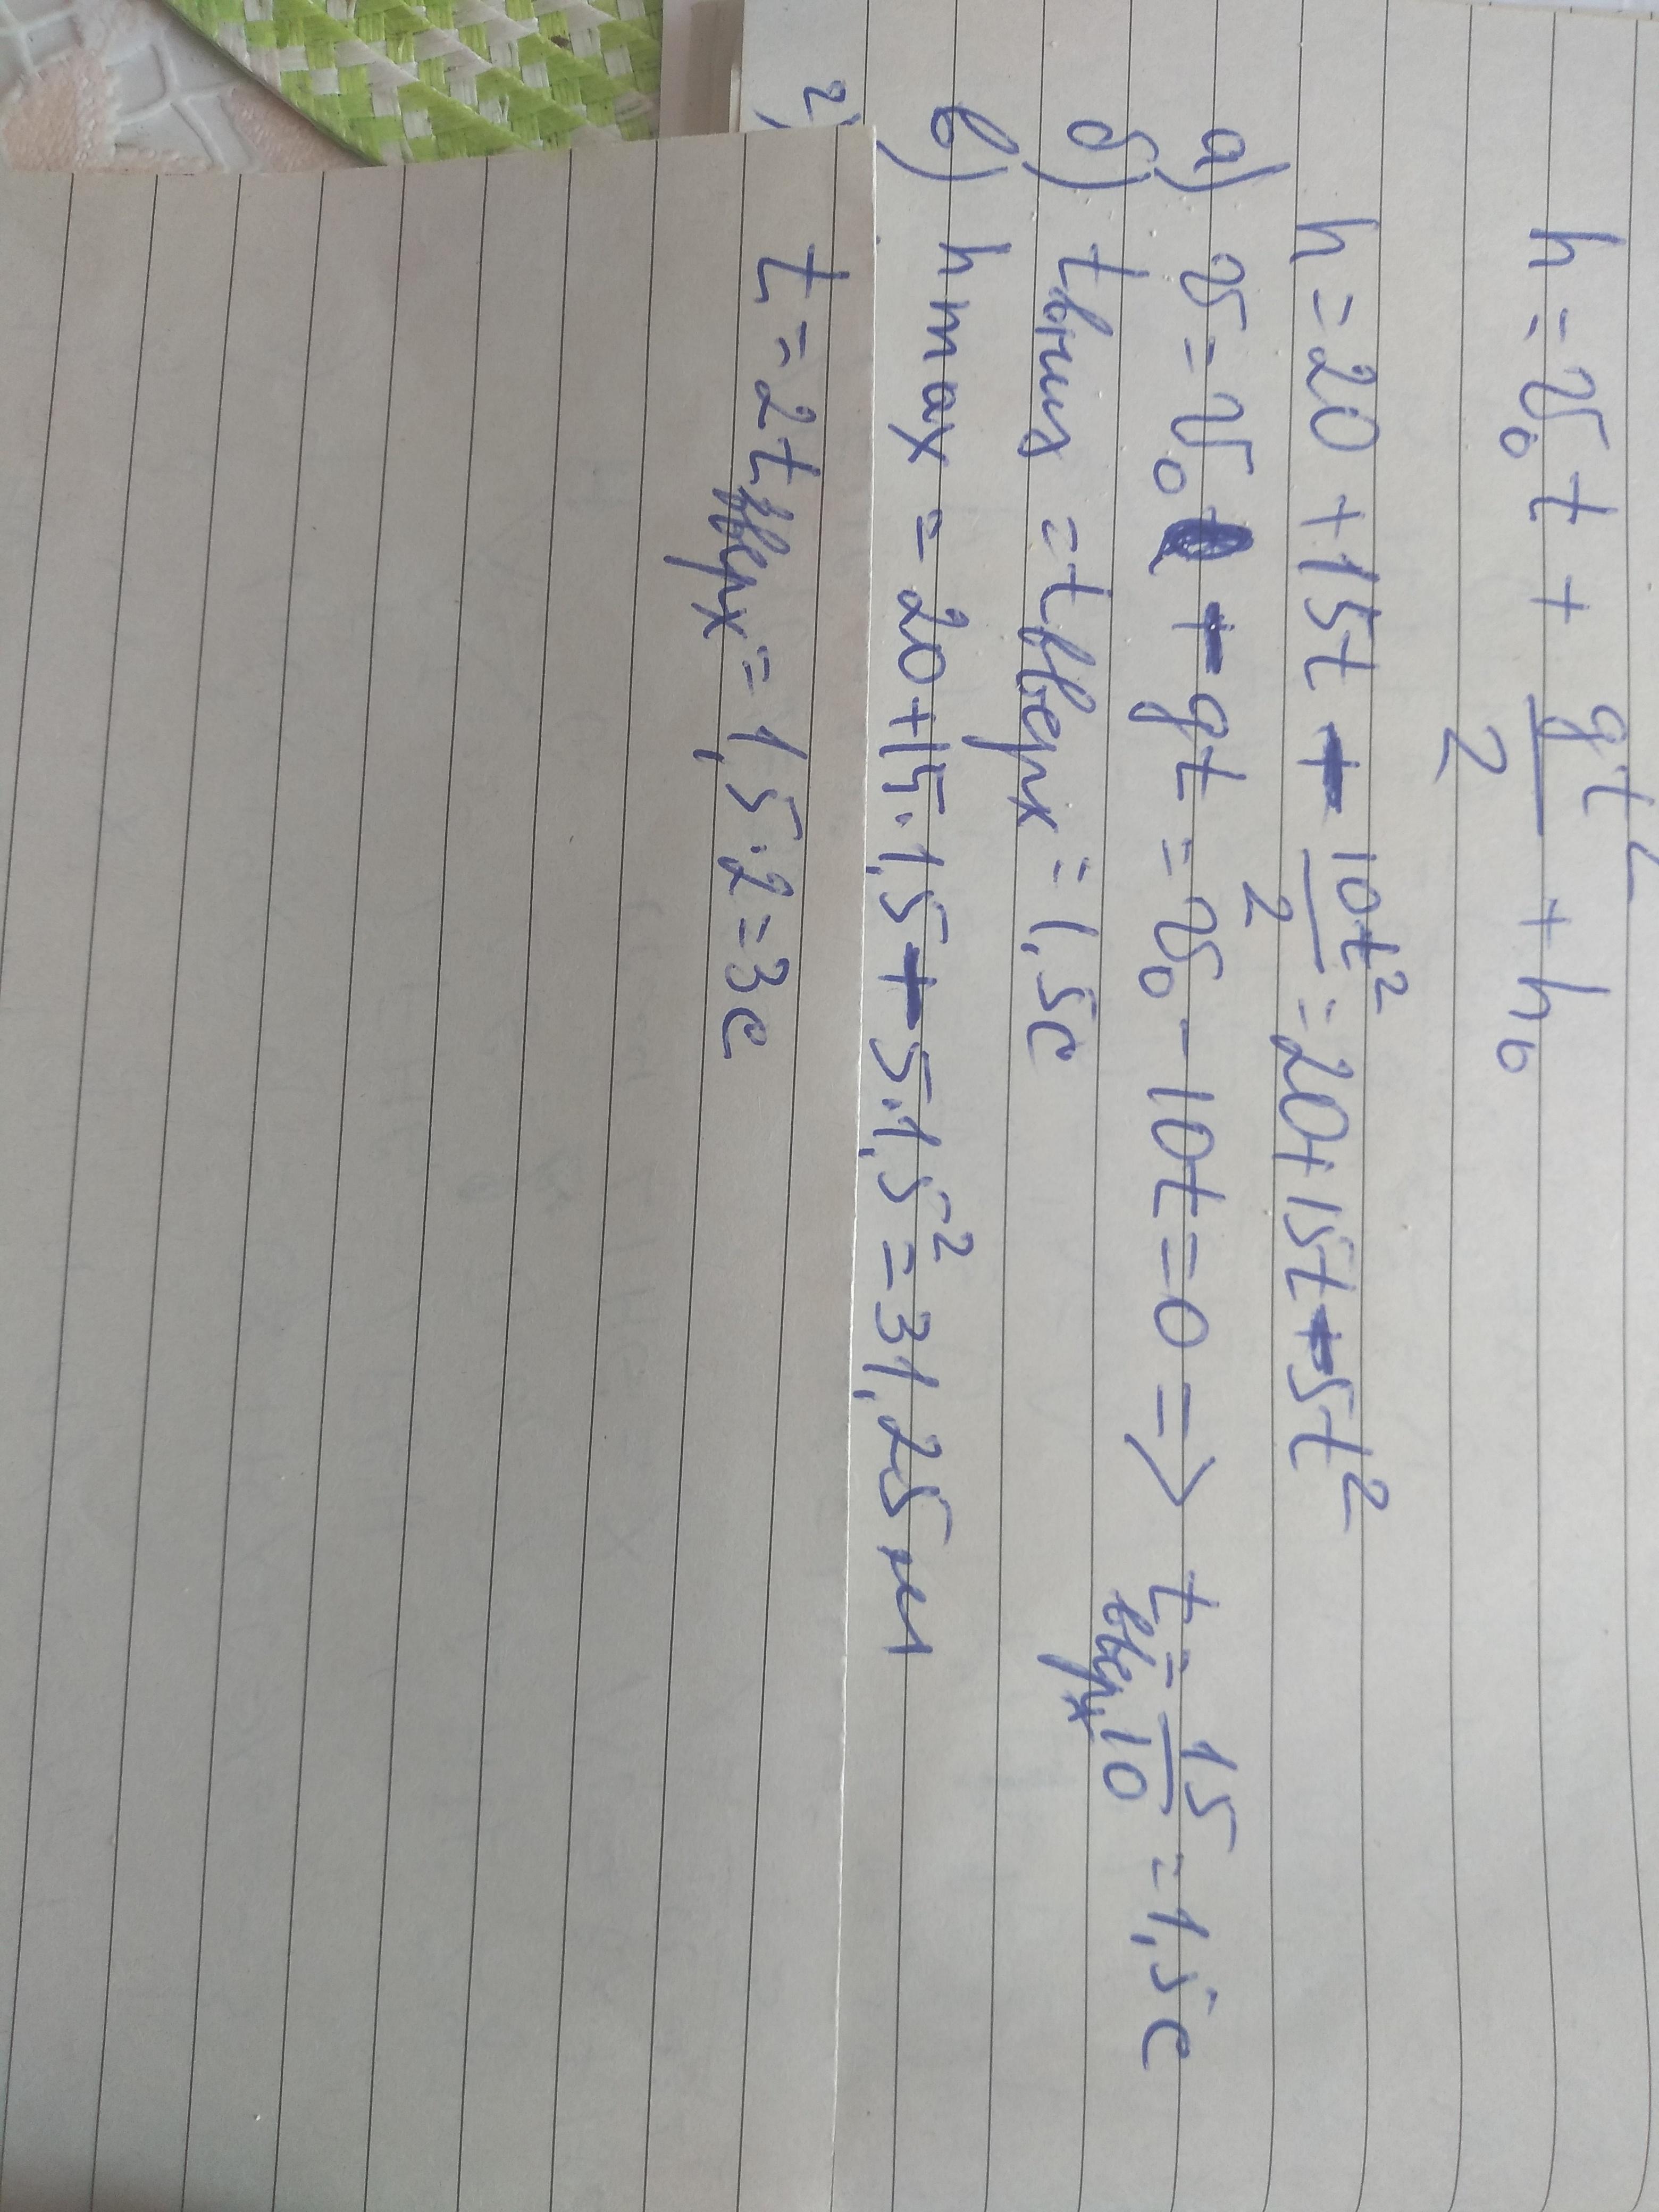 h = v₀t + gt²/2 + h₀
h = 20 + 15t - 10t²/2 = 20 + 15t - 5t²
а) v = v₀ - gt = v₀ - 10t = 0 => t вверх = 15/10 = 1,5 с
б) t вниз = t вверх = 1,5 с
в) h max = 20 + 15·1,5 - 5·1,5² = 31,25 м
г) t = 2t вверх = 1,5·2 = 3 с